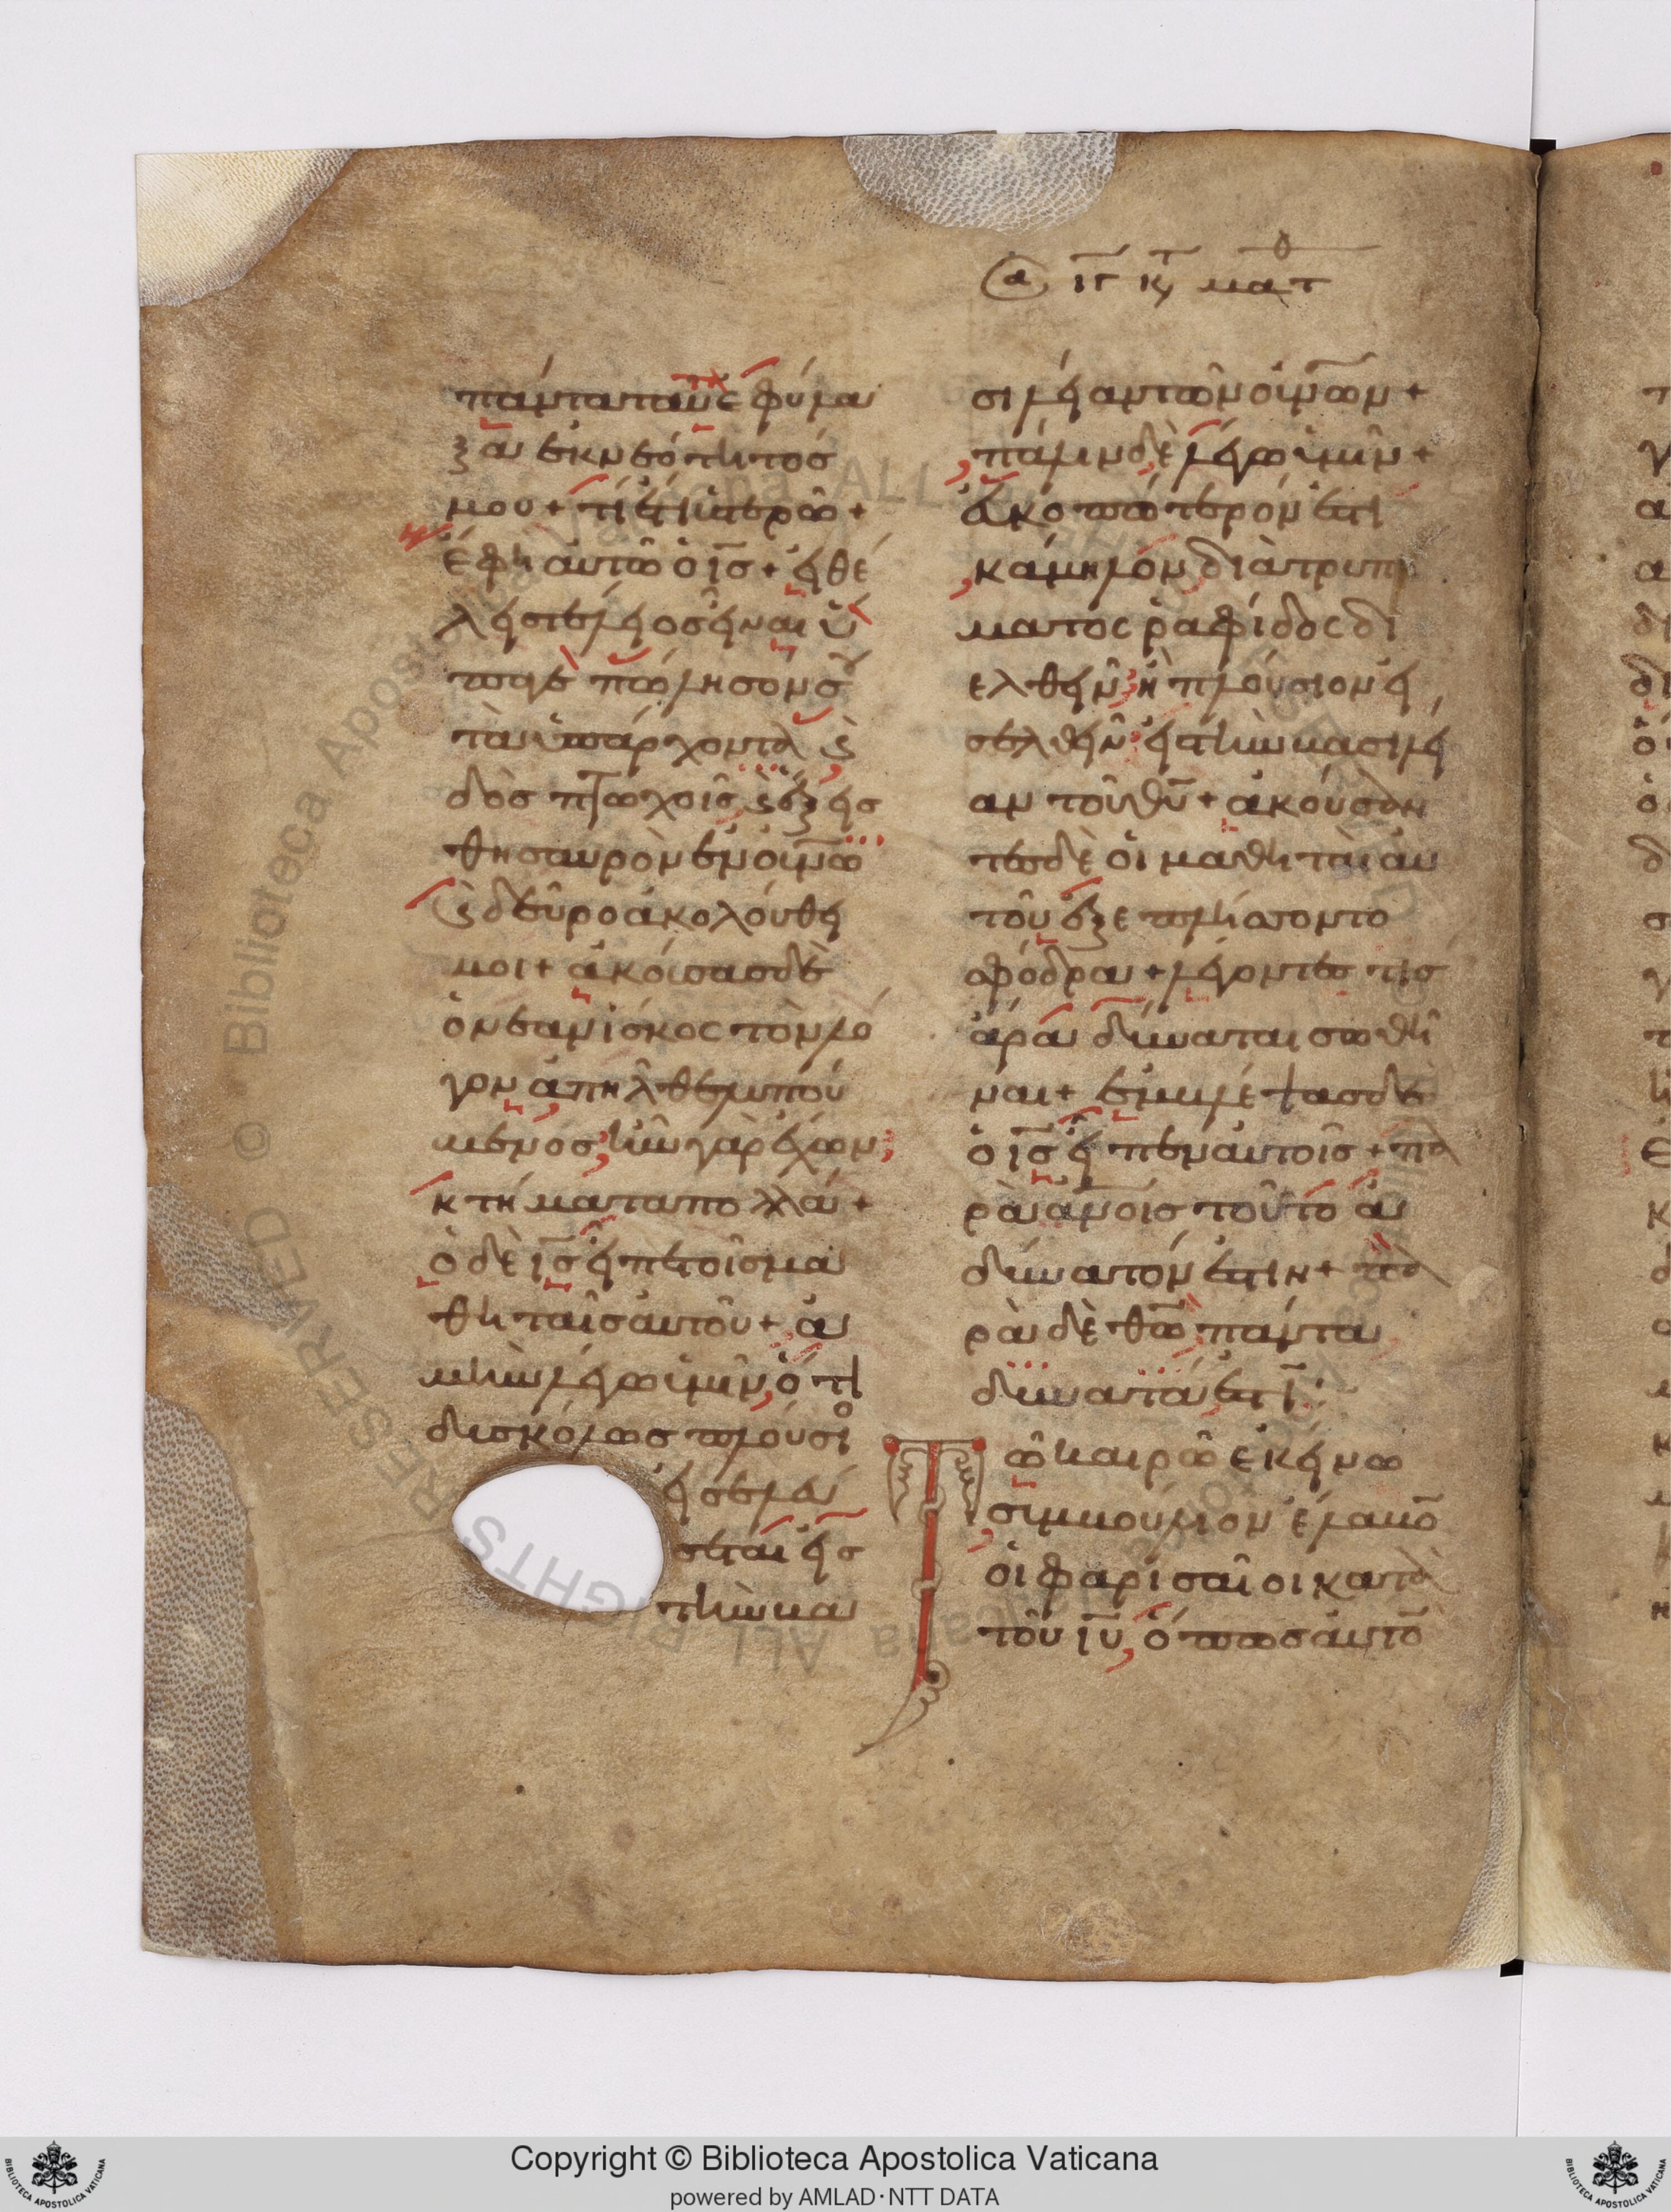 ⓐ ιγ κυ ματθ
πάντα ταῦτα ἐφύλα
ξα ἐκ νεότητός
μου + τί ἔτι ὑστερῶ +
ἔφη αὐτῶ ὁ ις + εἰ θέ
λεις τέλειος εἶναι ὕ
παγε πώλησόν σου
τὰ ὑπάρχοντα ϗ
δὸς πτωχοῖς ϗ ἕξεις
θησαυρὸν ἐν οὐνω
ϗ δεῦρο ἀκολούθει
μοι + ἀκούσας δὲ
ὁ νεανίσκος τὸν λό
γον ἀπῆλθε λυπού
μενος, ἦν γὰρ ἔχων,
κτήματα πολλά +
ὁ δὲ ις εἶπε τοῖς μα
θηταῖς αὐτοῦ + ἀ
μὴν λέγω ὑμῖν, ὅτι
δυσκόλως πλούσιο
εἰσελεύ
σεται εἰς
τὴν βα
σιλείαν τῶν οὐνων +
πάλιν δὲ λέγω ὑμῖν +
εὐκοπώτερόν ἐστι
κάμηλον διὰ τρυπή
ματος ῥαφίδος δι
ελθεῖν, ἢ πλούσιον εἰ
σελθεῖν εἰς τὴν βασιλεί
αν τοῦ θυ + ἀκούσαν
τες δὲ οἱ μαθηταὶ αὐ
τοῦ ἐξεπλήσσοντο
σφόδρα + λέγοντες τίς
ἄρα δύναται σωθῆ
ναι + ἐμβλέψας δὲ
ὁ ις εἶπεν αὐτοῖς + πα
ρὰ ανοις τοῦτο ἀ
δύνατόν ἐστιν + πα
ρὰ δὲ θω πάντα
δυνατά ἐστι :
Τῶ καιρῶ ἐκείνω
συμβούλιον ἔλαβο
οἱ φαρισαῖοι κατὰ
τοῦ ιυ, ὅπως αὐτὸ